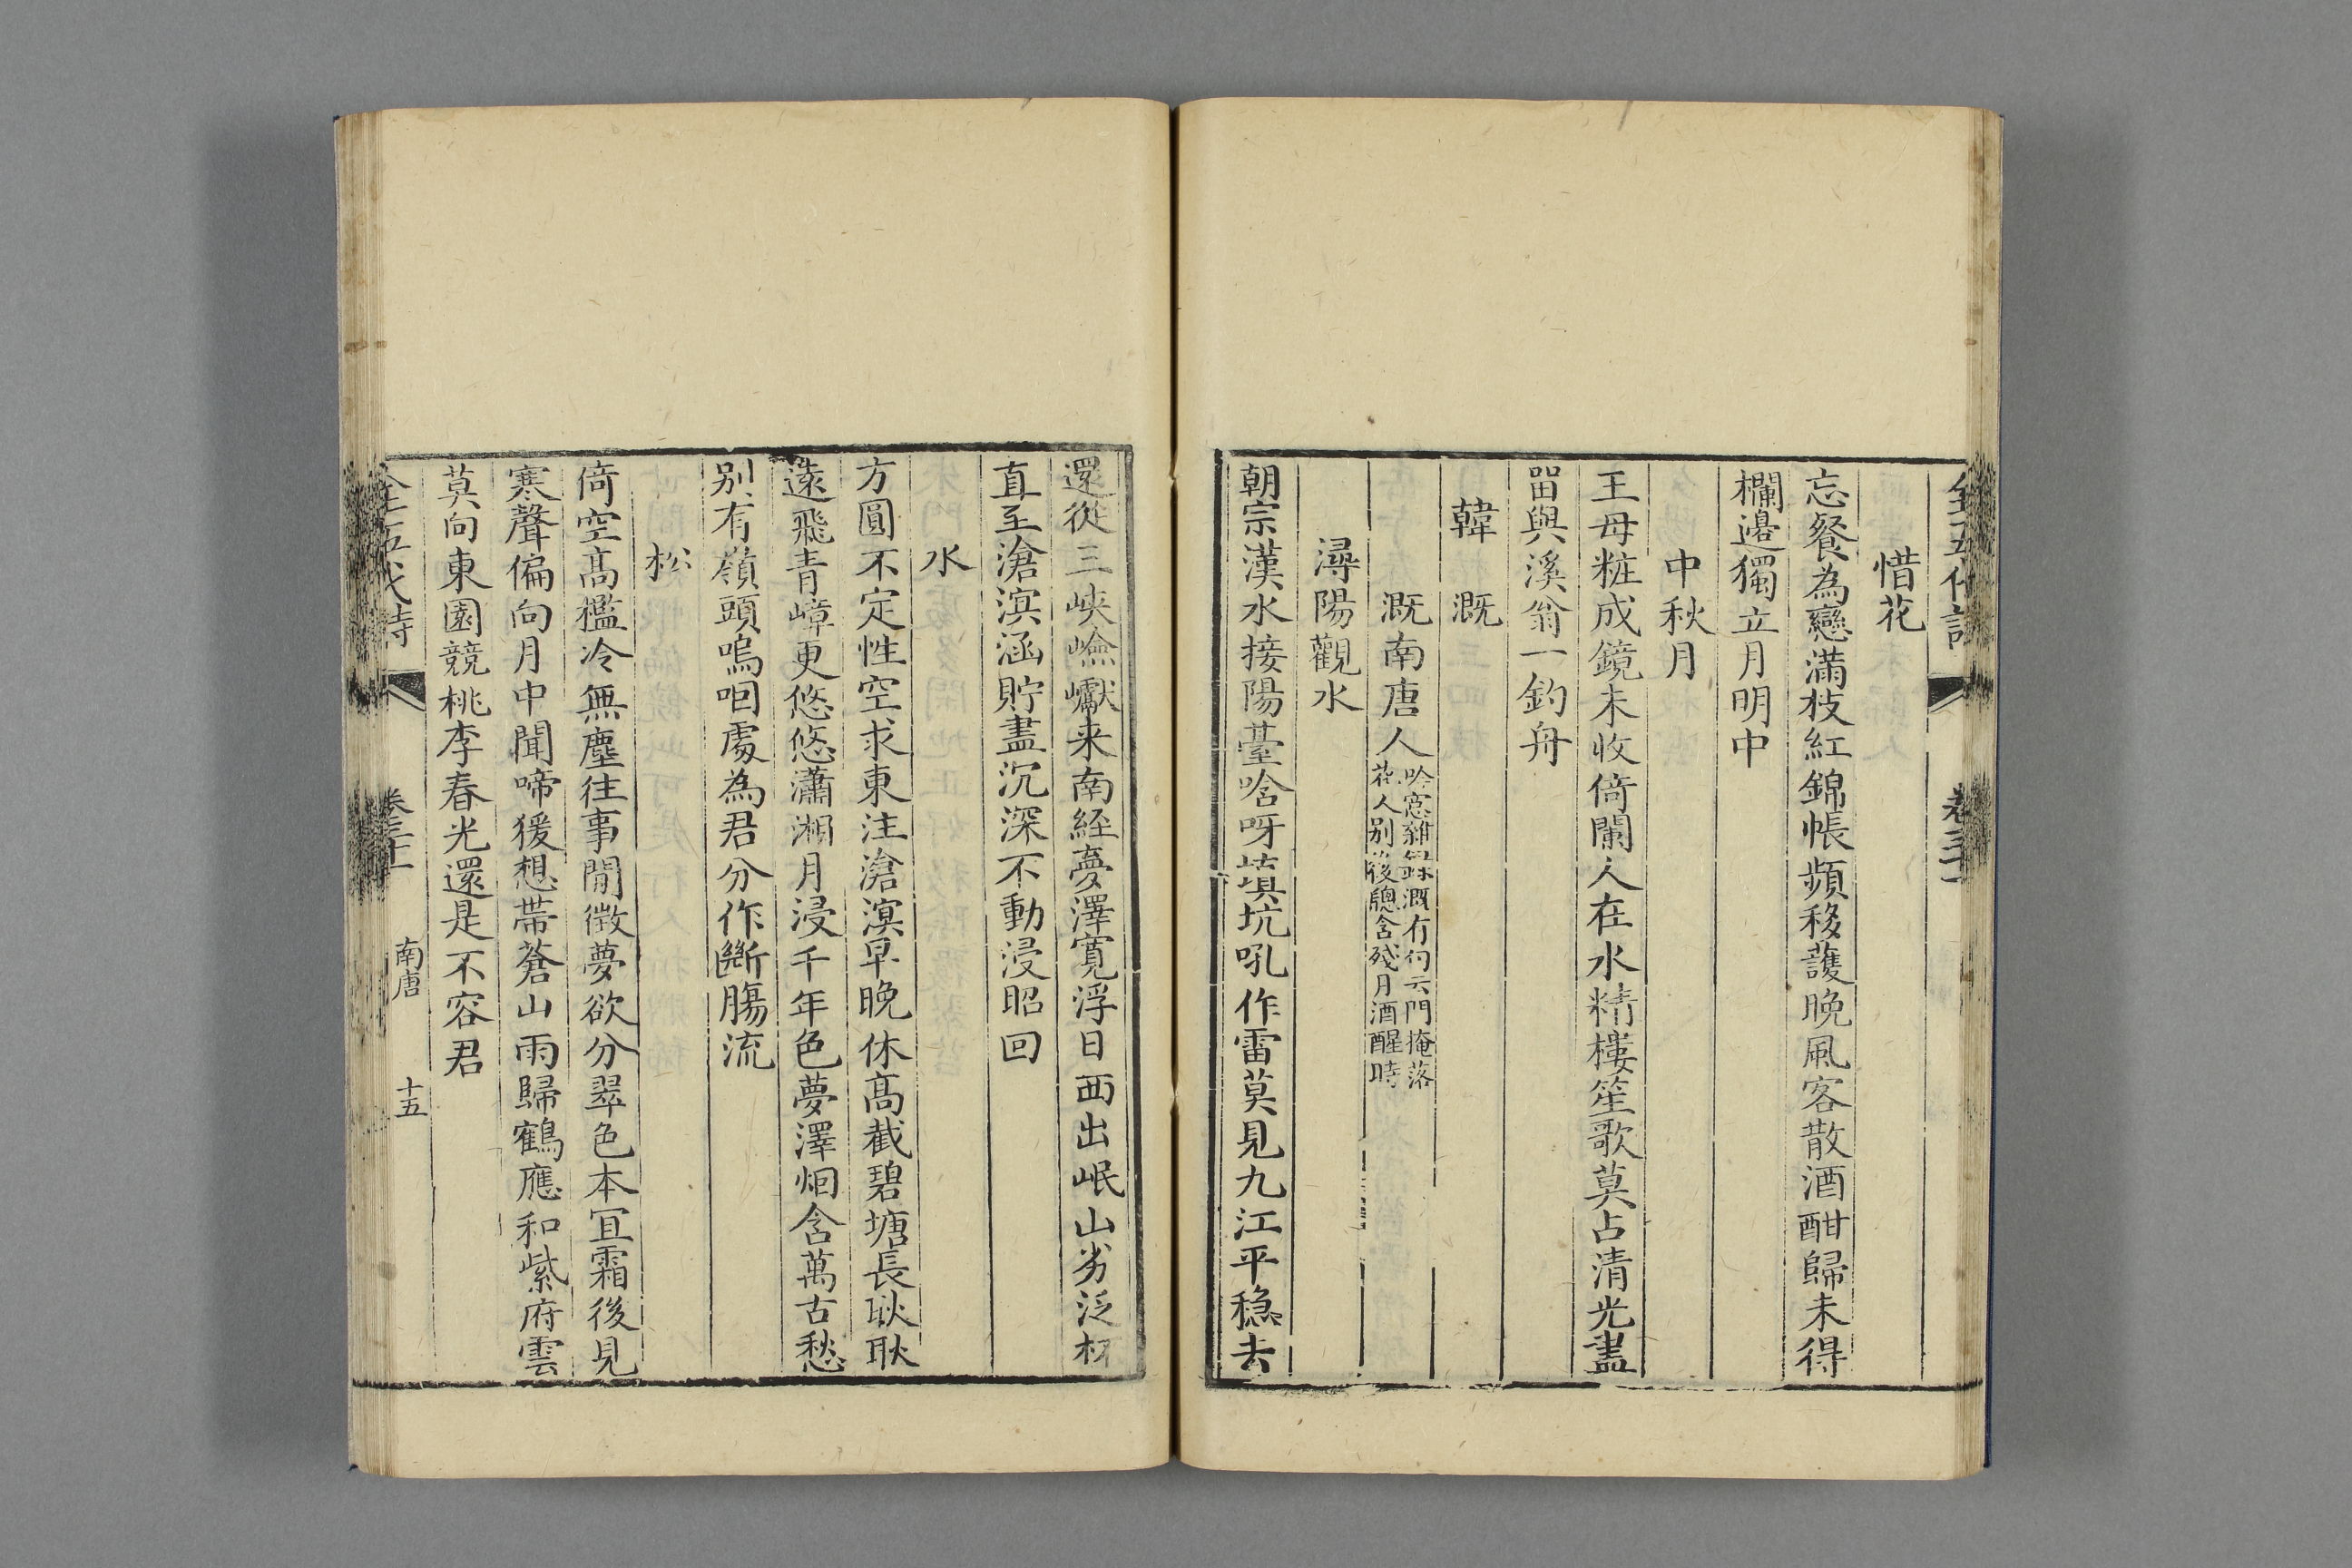 全五代詩 卷三十
惜花
忘餐為戀滿枝紅錦帳頻移護晚風客散酒酣歸未得
欄邊獨立月明中
中秋月
王母粧成鏡未收倚闌人在水精樓笙歌莫占清光盡
畱與溪翁一釣舟
韓溉
溉南唐人
吟窓雜錄溉有句云門掩落
花人别後牕含殘月酒醒時
潯陽觀水
朝宗漢水接陽臺唅呀塡坑吼作雷莫見九江平穩去
還從三峽嶮巇来南經夢澤寛浮日西出岷山劣泛杯
直至滄溟涵貯盡沉深不動浸昭回
水
方圓不定性空求東注滄溟早晚休高截碧塘長耿耿
遠飛青嶂更悠悠瀟湘月浸千年色夢澤烟含萬古愁
别有嶺頭嗚咽處為君分作斷膓流
松
倚空高檻冷無塵往事閒徴夢欲分翠色本冝霜後見
寒聲偏向月中聞啼猨想帶蒼山雨歸鶴應和紫府雲
莫向東園競桃李春光還是不容君
全五代詩 卷三十 南唐 十五